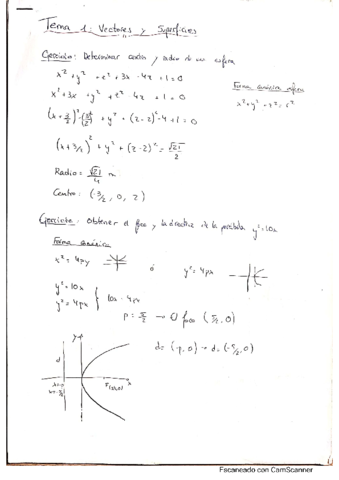 Tema 1: Vectores y Superficies
Ejercicio: Determinar centro y radio de una esfera
x² + y² + z² + 3x - 4z + 1 = 0
Forma canónica esfera
x² + 3x + y² + z² - 4z + 1 = 0
x² + y² + z² = r²
(x + 3/2)² - (3/2)² + y² + (z - 2)² - 4 + 1 = 0
(x + 3/2)² + y² + (z - 2)² = √21/2
Radio = √21/4
Centro: (-3/2, 0, 2)
Ejercicio: Obtener el foco y la directriz de la parábola y² = 10x
Forma canónica
x² = 4py ó y² = 4px
y² = 10x
y² = 4px } 10x = 4px
p = 5/2 → El foco (5/2, 0)
d = (-p, 0) → d = (-5/2, 0)
y
d
x
Escaneado con CamScanner